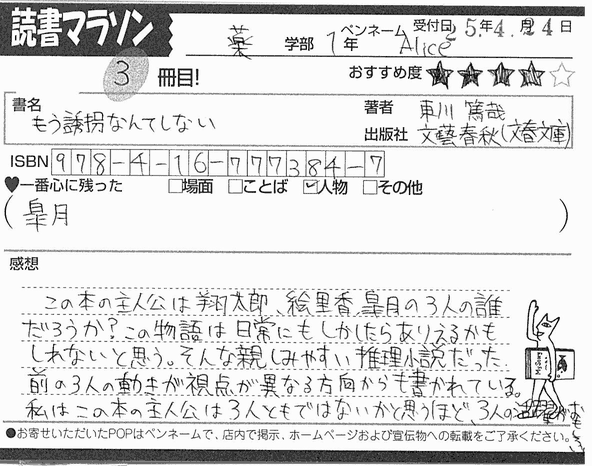 読書マラソン
薬 学部 1年 ペンネーム Alice 受付日 25年4.24日
3 冊目!
おすすめ度 ★★★★☆
書名 もう誘拐なんてしない
著者 東川 篤哉
出版社 文藝春秋(文春文庫)
ISBN 978-4-16-777384-7
♥一番心に残った □場面 □ことば ☑人物 □その他
(皐月)
感想
この本の主人公は翔太郎、絵里香、皐月の3人の誰
だろうか?この物語は日常にもしかしたらありえるかも
しれないと思う。そんな親しみやすい推理小説だった
前の3人の動きが視点が異なる方向からも書かれている。
私はこの本の主人公は3人ともではないかと思うほど、3人の
おもしろい
●お寄せいただいたPOPはペンネームで、店内で掲示、ホームページおよび宣伝物への転載をご了承ください。